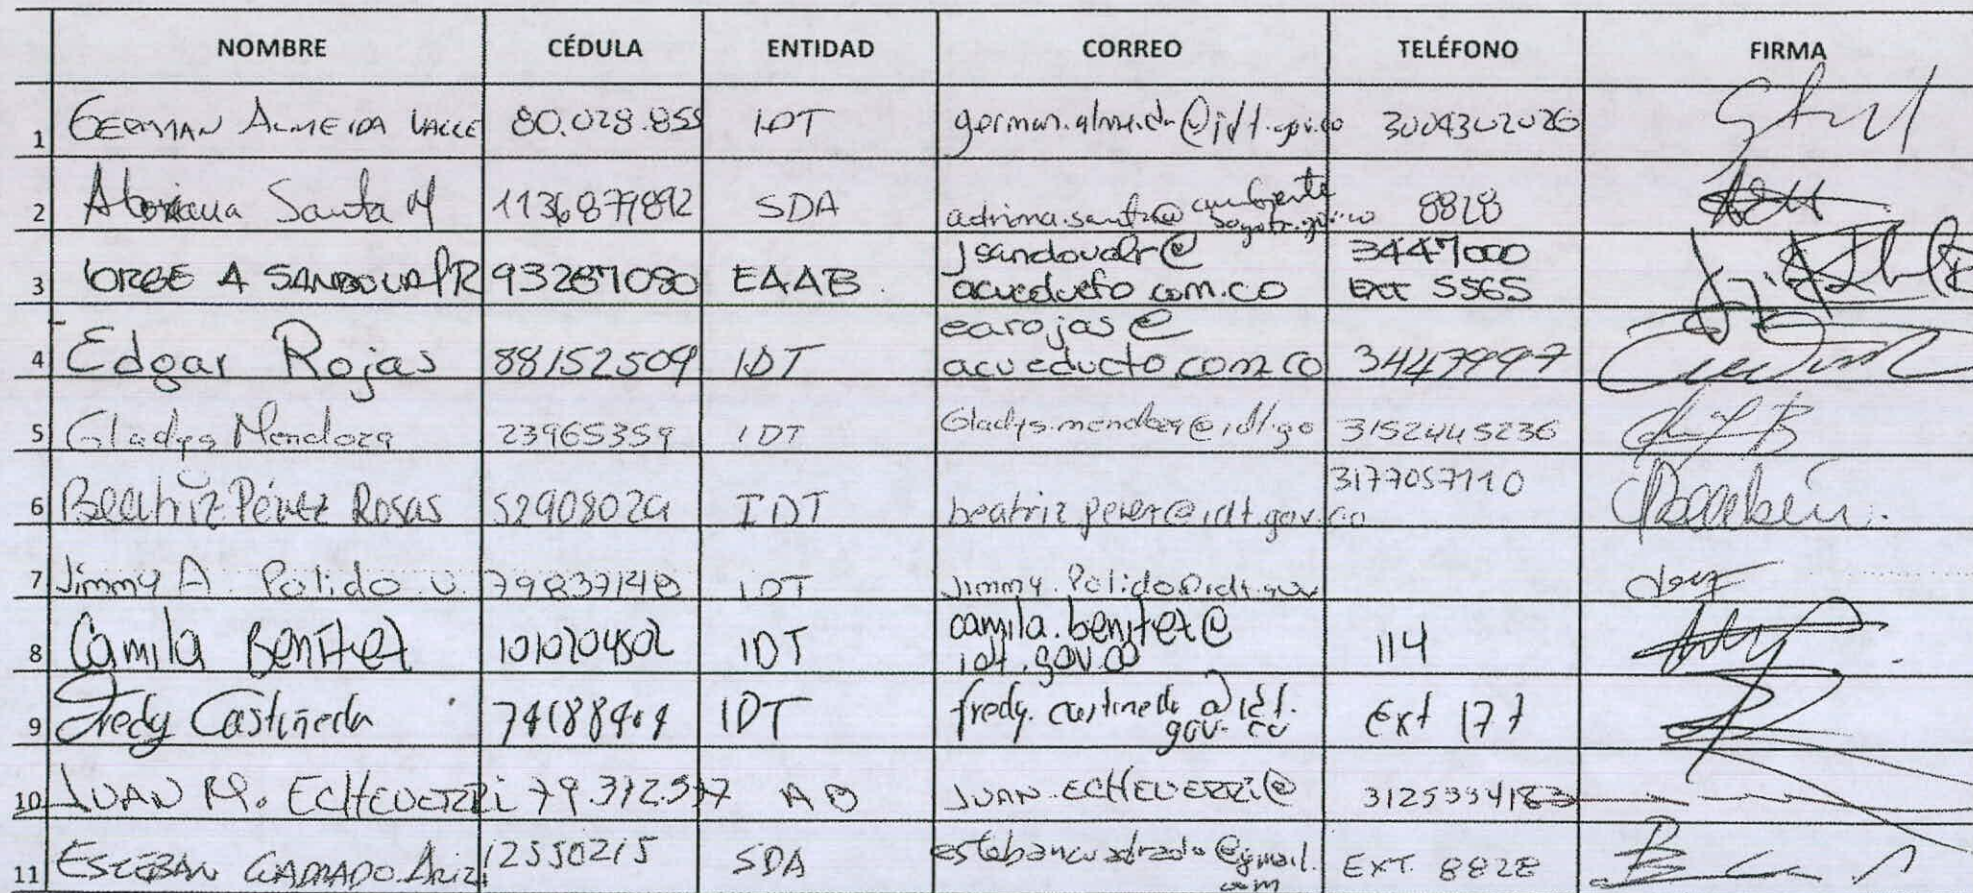 NOMBRE CÉDULA ENTIDAD CORREO TELÉFONO FIRMA
1 GERMAN ALMEIDA VALLE 80.028.855 IDT german.almeida@idt.gov.co 3004302026
2 Adriana Santa M 1136879892 SDA adriana.santa@ambiente
bogota.gov.co 8828
3 JORGE A SANDOVAL R 93287080 EAAB jsandovalr@
acueducto.com.co 3447000
EXT 5565
4 Edgar Rojas 88152509 IDT earojas@
acueducto.com.co 3447997
5 Gladys Mendoza 23965359 IDT Gladys.mendoza@idt.go 3152445236
6 Beatriz Pérez Rosas IDT beatriz.perez@idt.gov.co 3177057110
7 Jimmy A. Polido V. 79837148 IDT Jimmy.Polido@idt.gov
8 Camila Benitez IDT camila.benitez@
idt.gov.co 114
9 Fredy Castiñeda IDT fredy.castineda@idt.
gov.co Ext 177
10 JUAN M. ECHEVERRI JUAN.ECHEVERRI@ 3125334183
11 ESTEBAN CUADRADO Ariza 12550215 SDA estebancuadrado@gmail.
com EXT. 8828